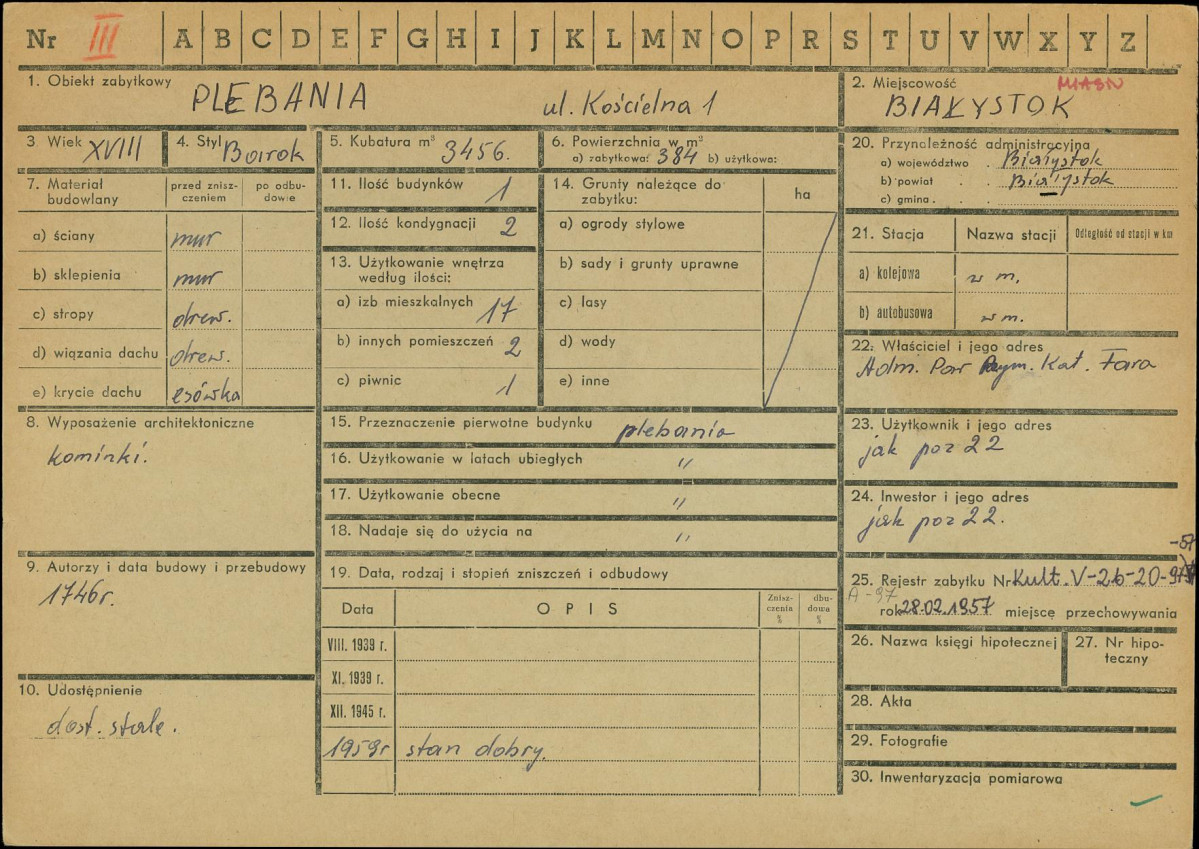 Nr III A B C D E F G H I J K L M N O P R S T U V W X Y Z
1. Obiekt zabytkowy
PLEBANIA ul. Kościelna 1
2. Miejscowość
BIAŁYSTOK
3. Wiek XVIII
4. Styl Barok
5. Kubatura m³ 3456.
6. Powierzchnia w m²
a) zabytkowa: 384 b) użytkowa:
20. Przynależność administracyjna
a) województwo . Białystok
b) powiat . . Białystok
c) gmina . . .
7. Materiał budowlany
przed zniszczeniem
po odbudowie
a) ściany mur
b) sklepienia mur
c) stropy drew.
d) wiązania dachu drew.
e) krycie dachu esówka
8. Wyposażenie architektoniczne
kominki.
9. Autorzy i data budowy i przebudowy
1746 r.
10. Udostępnienie
dost. stale.
11. Ilość budynków 1
12. Ilość kondygnacji 2
13. Użytkowanie wnętrza
według ilości:
a) izb mieszkalnych 17
b) innych pomieszczeń 2
c) piwnic 1
14. Grunty należące do
zabytku:
ha
a) ogrody stylowe
b) sady i grunty uprawne
c) lasy
d) wody
e) inne
15. Przeznaczenie pierwotne budynku plebania
16. Użytkowanie w latach ubiegłych "
17. Użytkowanie obecne "
18. Nadaje się do użycia na "
19. Data, rodzaj i stopień zniszczeń i odbudowy
Data OPIS Znisz-
czenia
%
dbu-
dowa
%
VIII. 1939 r.
XI. 1939 r.
XII. 1945 r.
1959 r stan dobry.
21. Stacja Nazwa stacji Odległość od stacji w km
a) kolejowa w m.
b) autobusowa w m.
22. Właściciel i jego adres
Adm. Par Rzym. Kat. Fara
23. Użytkownik i jego adres
jak poz 22
24. Inwestor i jego adres
jak poz 22.
25. Rejestr zabytku Nr Kult. V-26-20-
A-97
rok 28.02.1957 miejsce przechowywania
26. Nazwa księgi hipotecznej
27. Nr hipo-
teczny
28. Akta
29. Fotografie
30. Inwentaryzacja pomiarowa